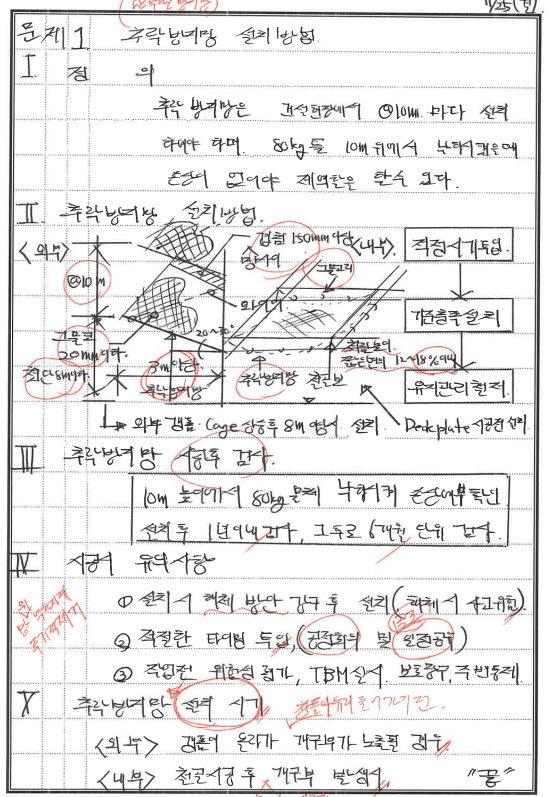 11/25(월)
문제 1 추락방지망 설치방법.
I 정 의
추락방지망은 건설현장에서 @10m 마다 설치
하여야 하며, 80kg을 10m 위에서 낙하시켰을때
손상이 없어야 제역할을 할수 있다.
II. 추락방지망 설치방법.
<외부>
겹침 150mm이상
<내부>
그물고리
적정시기투입
@10m
와이어
20~30°
기준층측설치
그물코
20mm이하
첫단 8m이하
3m 이상
추락방지망
추락방지망
철골보
12~18%
유지관리철저
외부 갱폼·Cage 상승후 8m 이상시 설치
Deckplate 시공전 설치
III 추락방지망 시공후 검사.
10m 높이에서 80kg 물체 낙하시켜 손상여부 확인
설치 후 1년이내 검사, 그후로 6개월 단위 검사.
IV 시공시 유의사항
① 설치시 해체 방안 강구 후 설치(해체시 사고유험)
② 적절한 타이밍 투입, (공정회의 및 안전공유)
③ 작업전 위험성 평가, TBM실시. 보호장구, 주변통제.
V 추락방지망 설치 시기
<외부> 갱폼이 올라가 개구부가 노출될 경우
<내부> 철골시공 후 개구부 발생시 "끝"